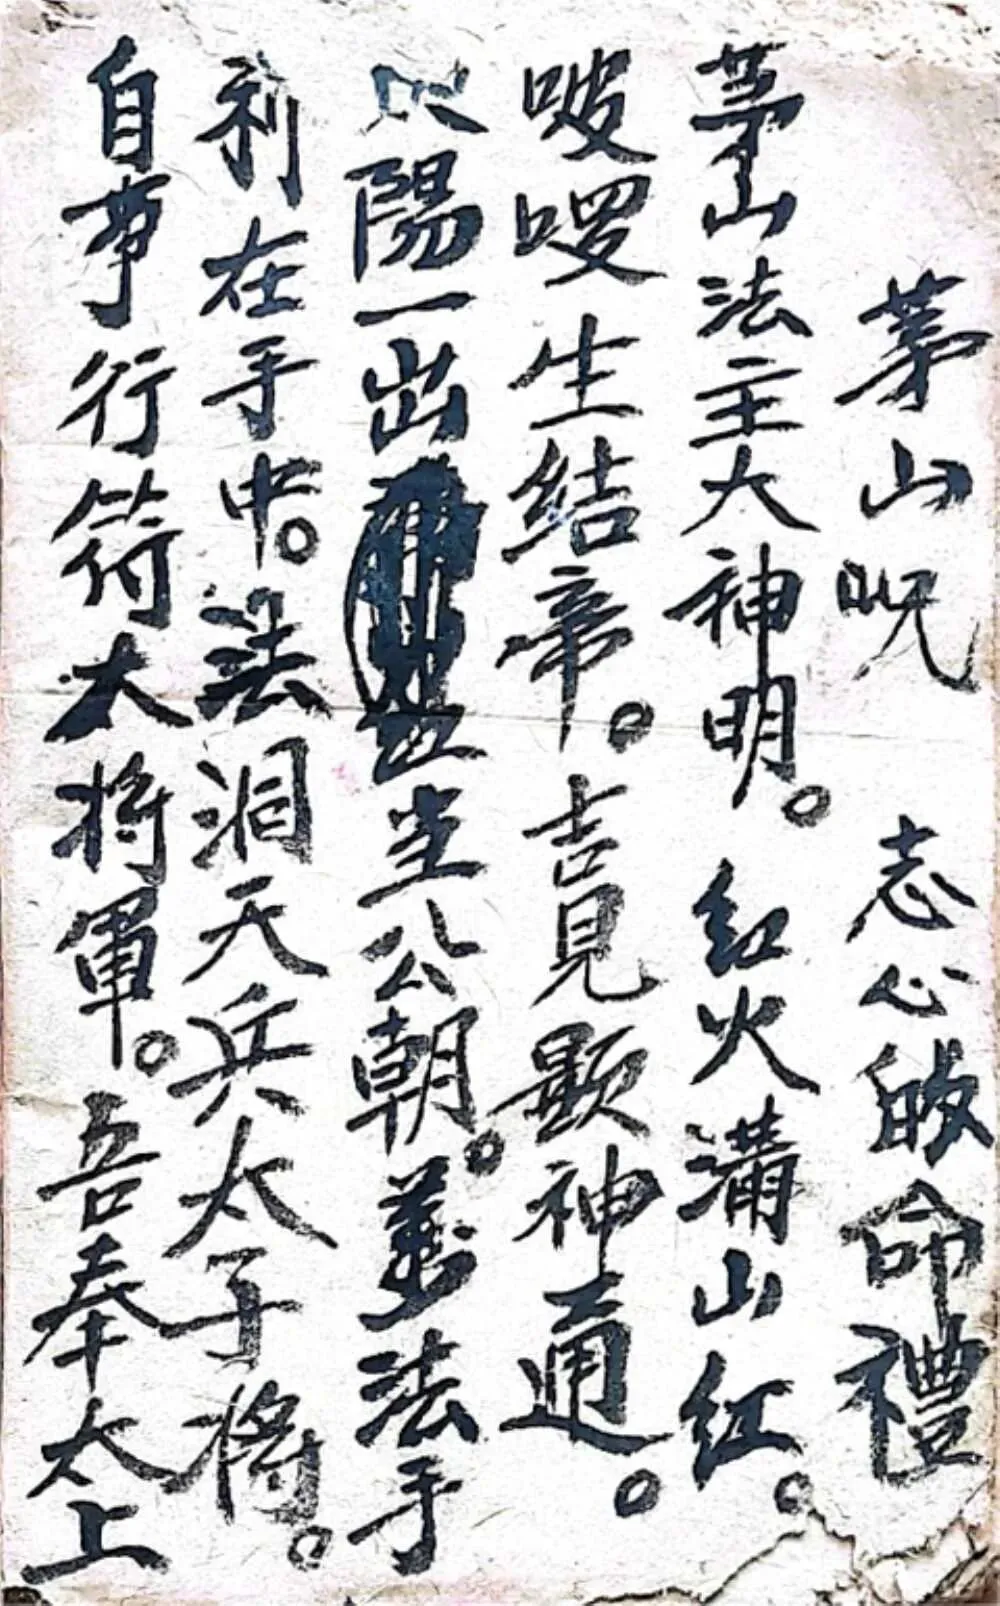 茅山咒 志心皈命禮
茅山法主大神明。紅火满山紅。
唆唆生結帝。吉見顯神通。
陽一出 坐公朝。萬法手
利在手中。法洞天兵太子将。
自本行符大将軍。吾奉太上